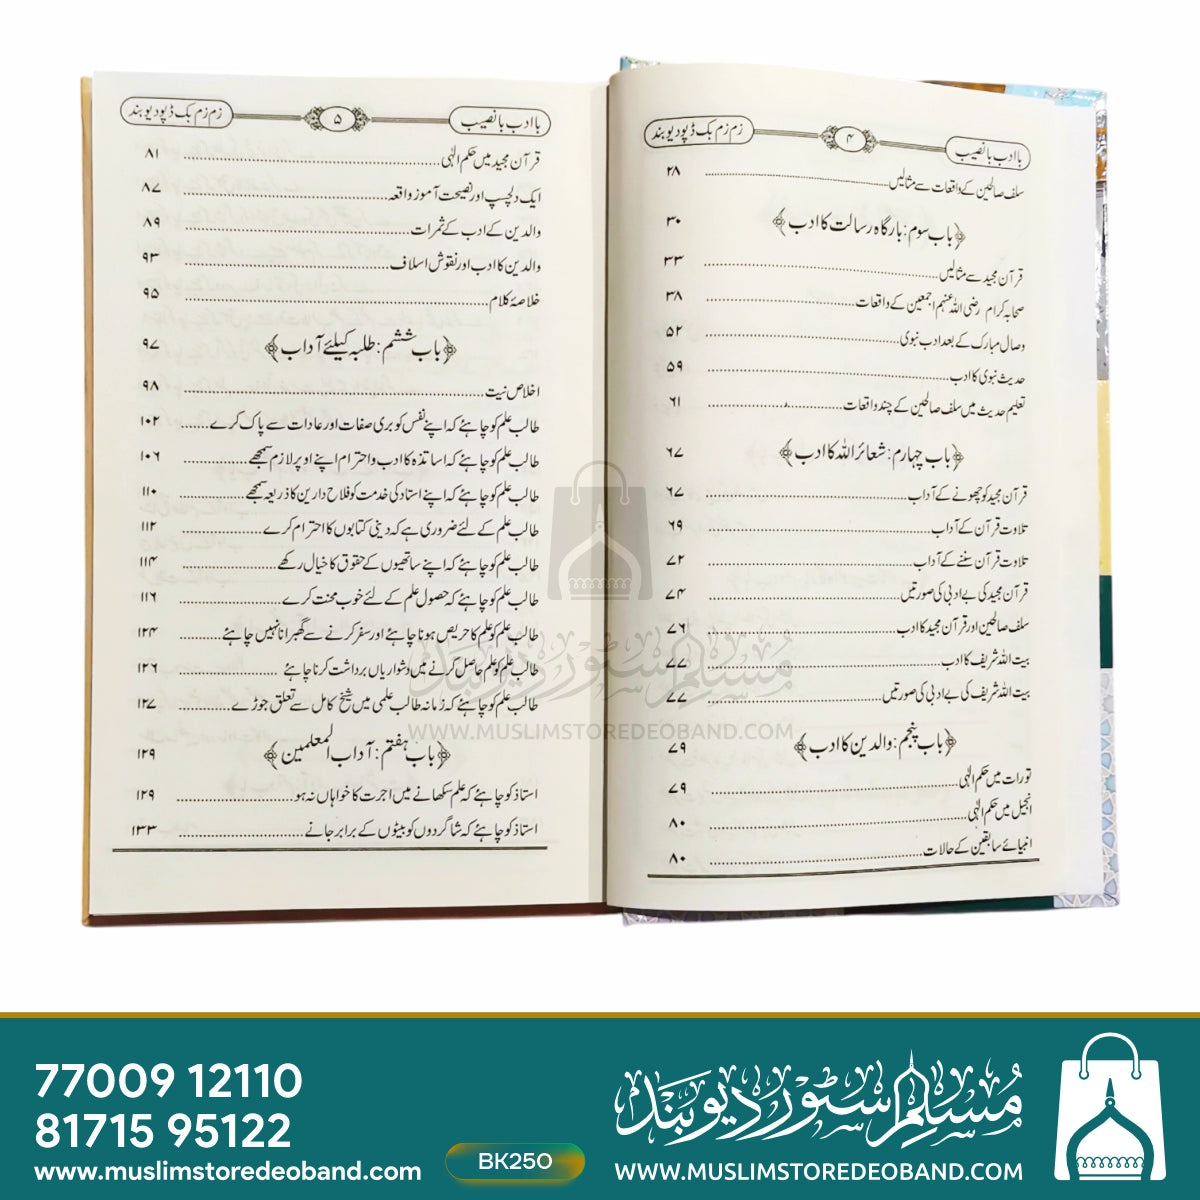 باادب بانصیب
۴
زم زم بک ڈپو دیوبند
سلف صالحین کے واقعات سے مثالیں ۲۸
﴿باب سوم: بارگاہ رسالت کا ادب﴾ ۳۰
قرآن مجید سے مثالیں ۳۳
صحابہ کرام رضی اللہ عنہم اجمعین کے واقعات ۳۸
وصال مبارک کے بعد ادب نبوی ۵۲
حدیث نبوی کا ادب ۵۹
تعلیم حدیث میں سلف صالحین کے چند واقعات ۶۱
﴿باب چہارم: شعائر اللہ کا ادب﴾ ۶۷
قرآن مجید کو چھونے کے آداب ۶۷
تلاوت قرآن کے آداب ۶۹
تلاوت قرآن سننے کے آداب ۷۲
قرآن مجید کی بے ادبی کی صورتیں ۷۴
سلف صالحین اور قرآن مجید کا ادب ۷۶
بیت اللہ شریف کا ادب ۷۷
بیت اللہ شریف کی بے ادبی کی صورتیں ۷۷
﴿باب پنجم: والدین کا ادب﴾ ۷۹
تورات میں حکم الٰہی ۷۹
انجیل میں حکم الٰہی ۸۰
انبیائے سابقین کے حالات ۸۰
باادب بانصیب
۵
زم زم بک ڈپو دیوبند
قرآن مجید میں حکم الٰہی ۸۱
ایک دلچسپ اور نصیحت آموز واقعہ ۸۷
والدین کے ادب کے ثمرات ۸۹
والدین کا ادب اور نقوش اسلاف ۹۳
خلاصۂ کلام ۹۵
﴿باب ششم: طلبہ کیلئے آداب﴾ ۹۷
اخلاص نیت ۹۸
طالب علم کو چاہئے کہ اپنے نفس کو بری صفات اور عادات سے پاک کرے ۱۰۲
طالب علم کو چاہئے کہ اساتذہ کا ادب واحترام اپنے اوپر لازم سمجھے ۱۰۶
طالب علم کو چاہئے کہ اپنے استاد کی خدمت کو فلاح دارین کا ذریعہ سمجھے ۱۱۰
طالب علم کے لئے ضروری ہے کہ دینی کتابوں کا احترام کرے ۱۱۲
طالب علم کو چاہئے کہ اپنے ساتھیوں کے حقوق کا خیال رکھے ۱۱۴
طالب علم کو چاہئے کہ حصول علم کے لئے خوب محنت کرے ۱۱۶
طالب علم کو علم کا حریص ہونا چاہئے اور سفر کرنے سے گھبرانا نہیں چاہئے ۱۲۴
طالب علم کو علم حاصل کرنے میں دشواریاں برداشت کرنا چاہئے ۱۲۶
طالب علم کو چاہئے کہ زمانہ طالب علمی میں شیخ کامل سے تعلق جوڑے ۱۲۷
﴿باب ہفتم: آداب المعلمین﴾ ۱۲۹
استاذ کو چاہئے کہ علم سکھانے میں اجرت کا خواہاں نہ ہو ۱۲۹
استاذ کو چاہئے کہ شاگردوں کو بیٹوں کے برابر جانے ۱۳۳
مسلم سٹور دیوبند
WWW.MUSLIMSTOREDEOBAND.COM
77009 12110
81715 95122
www.muslimstoredeoband.com
BK250
مسلم سٹور دیوبند
WWW.MUSLIMSTOREDEOBAND.COM